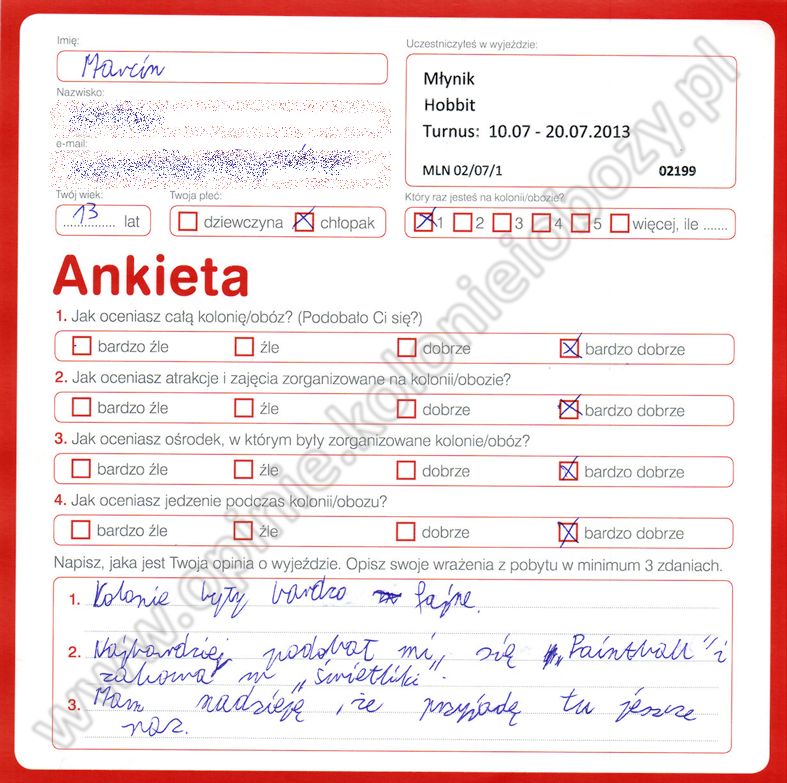 Imię:
Marcin
Nazwisko:
e-mail:
Twój wiek:
13 lat
Twoja płeć:
dziewczyna chłopak
Uczestniczyłeś w wyjeździe:
Młynik
Hobbit
Turnus: 10.07 - 20.07.2013
MLN 02/07/1 02199
Który raz jesteś na kolonii/obozie?
1 2 3 4 5 więcej, ile .......
Ankieta
1. Jak oceniasz całą kolonię/obóz? (Podobało Ci się?)
bardzo źle źle dobrze bardzo dobrze
2. Jak oceniasz atrakcje i zajęcia zorganizowane na kolonii/obozie?
bardzo źle źle dobrze bardzo dobrze
3. Jak oceniasz ośrodek, w którym były zorganizowane kolonie/obóz?
bardzo źle źle dobrze bardzo dobrze
4. Jak oceniasz jedzenie podczas kolonii/obozu?
bardzo źle źle dobrze bardzo dobrze
Napisz, jaka jest Twoja opinia o wyjeździe. Opisz swoje wrażenia z pobytu w minimum 3 zdaniach.
1. Kolonie były bardzo fajne.
2. Najbardziej podobał mi się „Paintball" i
zabawa w „świetliki".
3. Mam nadzieję, że przyjadę tu jeszcze
raz.
www.opinie.kolonieiobozy.pl